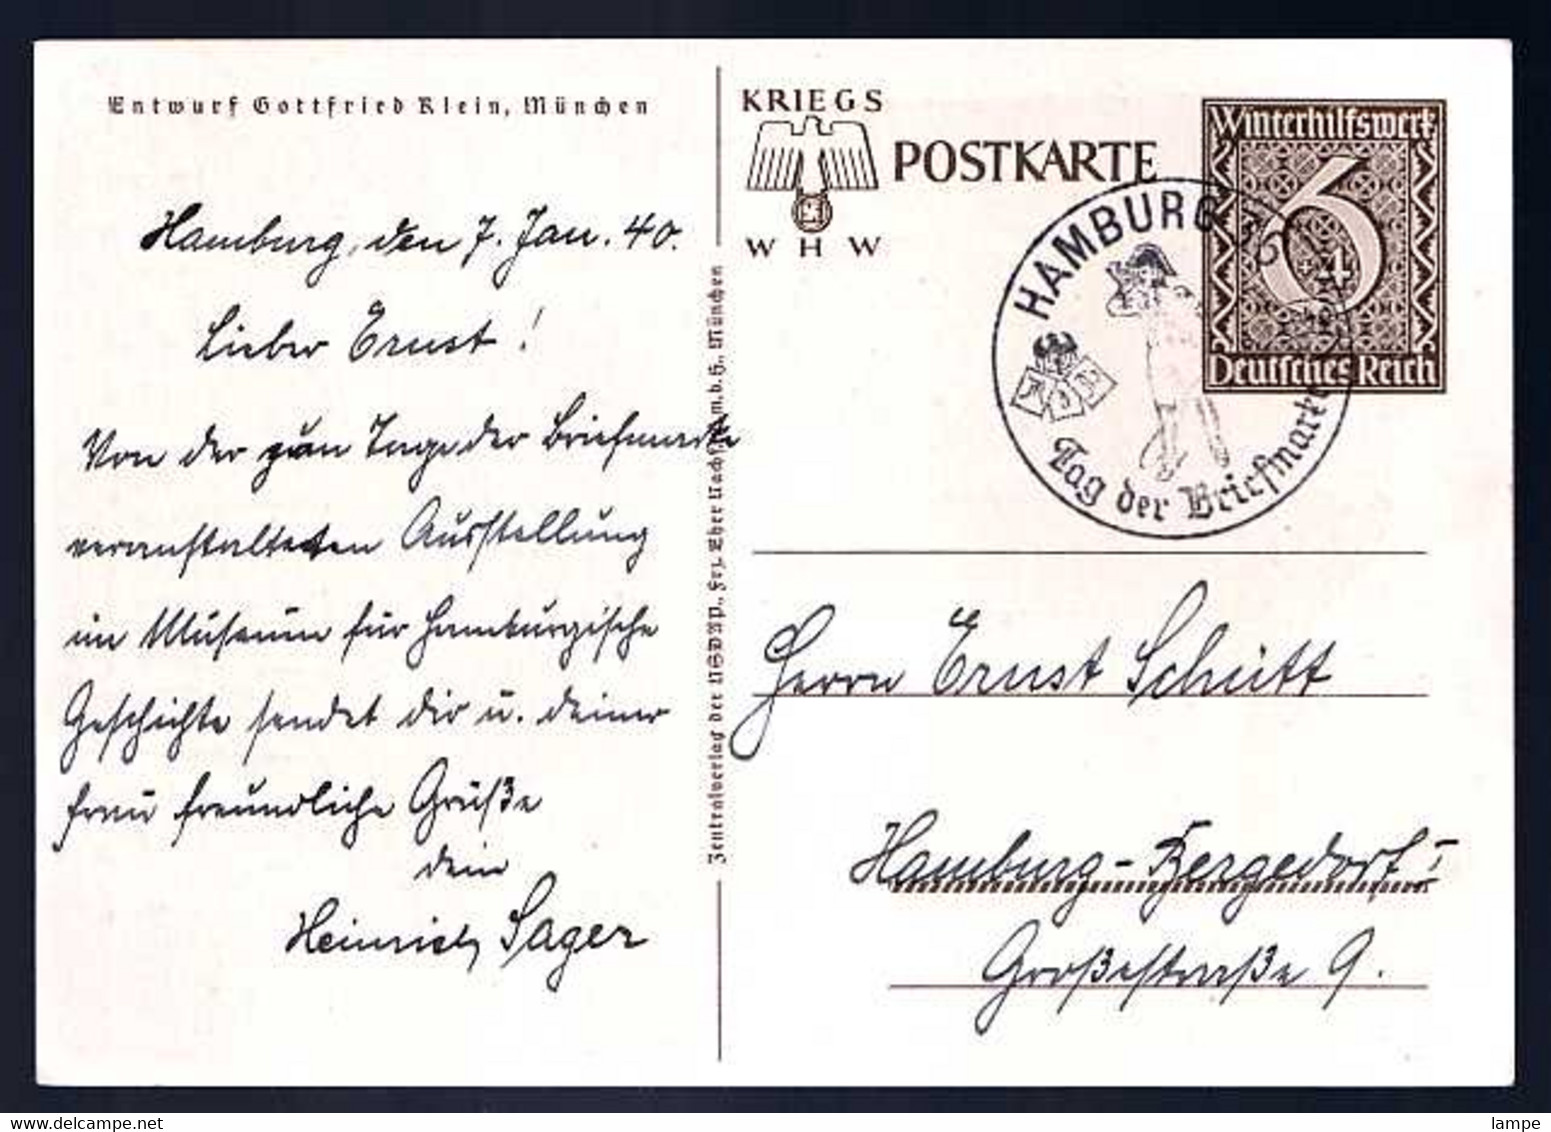 Entwurf Gottfried Klein, München
Hamburg, den 7. Jan. 40.
Lieber Ernst!
Von der zum Tage der Briefmarke
veranstalteten Ausstellung
im Museum für hamburgische
Geschichte sendet dir u. deiner
Frau freundliche Grüße
dein
Heinrich Sager
Zentralverlag der NSDAP., Frz. Eher Nachf. G.m.b.H., München
KRIEGS
WHW
POSTKARTE
Winterhilfswerk
6+4
Deutsches Reich
HAMBURG 36
Tag der Briefmarke
Herrn Ernst Schütt
Hamburg-Bergedorf 1
Großestraße 9.
lampe